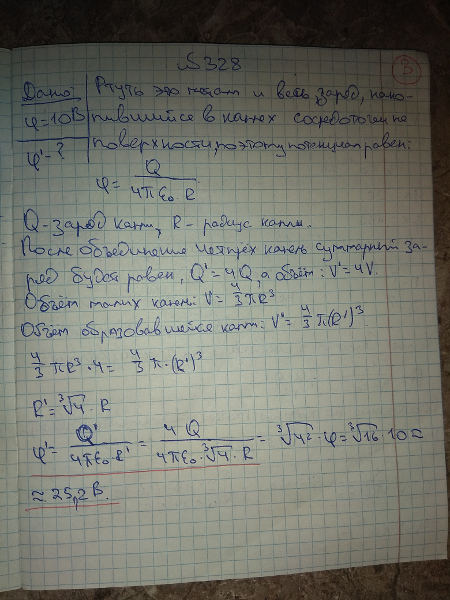 №328
В
Дано: Ртуть это металл и весь заряд, нако-
φ=10В пившийся в каплях сосредоточен на
φ'-? поверхности, поэтому потенциал равен:
φ= Q / 4πε₀·R
Q-заряд капли, R-радиус капли.
После объединения четырёх капель суммарный за-
ряд будет равен, Q'=4Q, а объём: V'=4V.
Объём таких капель: V=4/3πR³
Объём образовавшейся капли: V'=4/3π(R')³
4/3πR³·4=4/3π·(R')³
R'=³√4·R
φ'= Q' / 4πε₀·R' = 4Q / 4πε₀·³√4·R = ³√4²·φ=³√16·10≈
≈25,2В.